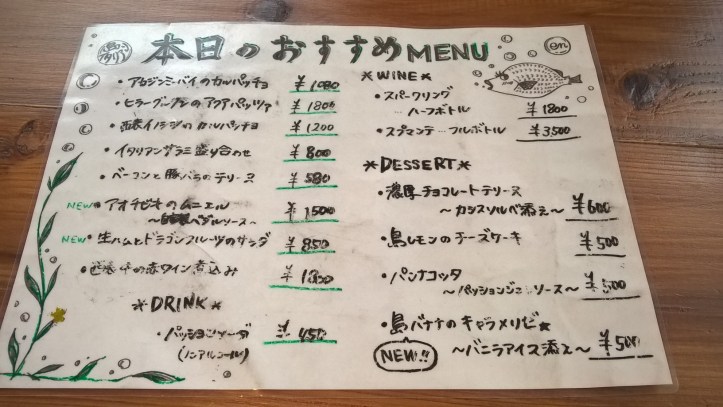 本日のおすすめMENU
・アカジンミーバイのカルパッチョ ¥1080
・セラーブーブンのアクアパッツァ ¥1800
イノシシのカルパッチョ ¥1200
・イタリアンサラミ盛り合わせ ¥800
・ベーコンと豚バラのテリーヌ ¥580
NEW アオチビキのムニエル
ソース〜 ¥1500
NEW・生ハムとドラゴンフルーツのサラダ ¥850
牛の赤ワイン煮込み
*DRINK*
・パッションソーダ ¥450
(ノンアルコール)
*WINE*
・スパークリング
ハーフボトル ¥1800
・スプマンテ フルボトル ¥3,500
*DESSERT*
・濃厚チョコレートテリーヌ
〜カシスソルベ添え〜 ¥600
・島レモンのチーズケーキ ¥500
・パンナコッタ
〜パッション ソース〜 ¥500
・島バナナのキャラメリゼ★
NEW!! 〜バニラアイス添え〜 ¥500